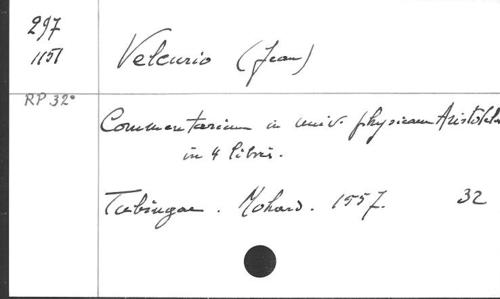 297
1151
Velcurio (Jean)
RP 32°
Commentarium in univ. physicam Aristotelis
in 4 libris.
Tubingae. Mohard. 1557. 32